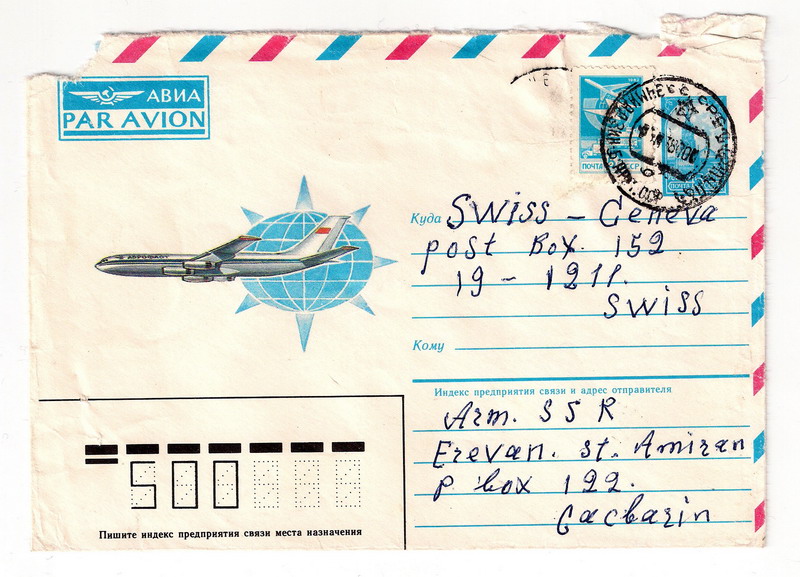 АВИА
PAR AVION
АЭРОФЛОТ
ПОЧТА СССР
ПОЧТА
Куда Swiss - Geneva
post Box. 152
19 - 1211.
Swiss
Кому
Индекс предприятия связи и адрес отправителя
Arm. SSR
Erevan. st. Amiran
p box 122.
500
Пишите индекс предприятия связи места назначения